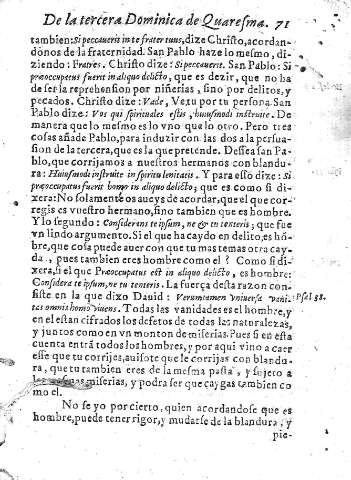 De la tercera Dominica de Quaresma. 71
tambien: Si peccaueris in te frater tuus, dize Christo, acordan-
dònos de la fraternidad. San Pablo haze lo mesmo, di-
ziendo: Fratres. Christo dize: Si peccauerit. San Pablo: Si
præoccupatus fuerit in aliquo delicto, que es dezir, que no ha
de ser la reprehension por niñerias, sino por delitos, y
pecados. Christo dize: Vade, Ve tu por tu persona. San
Pablo dize: Vos qui spirituales estis, huiusmodi instruite. De
manera que lo mesmo es lo vno que lo otro. Pero tres
cosas añade Pablo, para induzir con las dos a la persua-
sion de la tercera, que es la que pretende. Dessea san Pa-
blo, que corrijamos a nuestros hermanos con blandu-
ra: Huiusmodi instruite in spiritu lenitatis. Y para esso dize: Si
præoccupatus fuerit homo in aliquo delicto, que es como si di-
xera: No solamente os aueys de acordar, que el que cor-
regis es vuestro hermano, sino tambien que es hombre.
Y lo segundo: Considerans te ipsum, ne & tu tenteris, que fue
vn lindo argumento. Si el que ha caydo en delito, es hõ-
bre, que cosa puede auer con que tu mas temas otra cay-
da, pues tambien eres hombre como el? Como si di-
xera, si el que Præoccupatus est in aliquo delicto, es hombre:
Considera te ipsum, ne tu tenteris. La fuerça desta razon con-
siste en la que dixo Dauid: Verumtamen vniuersa vani- Psal 38.
tas omnis homo viuens. Todas las vanidades es el hombre, y
en el estan cifrados los defetos de todas las naturalezas,
y juntos como en vn monton de miserias. Pues si en esta
cuenta entrã todos los hombres, y por aqui vino a caer
esse que tu corrijes, auisote que le corrijas con blandu-
ra, que tu tambien eres de la mesma pasta, y sujeto a
miserias, y podra ser que caygas tambien co
mo el.
No se yo por cierto, quien acordandose que es
hombre, puede tener rigor, y mudarse de la blandura, y
pie-